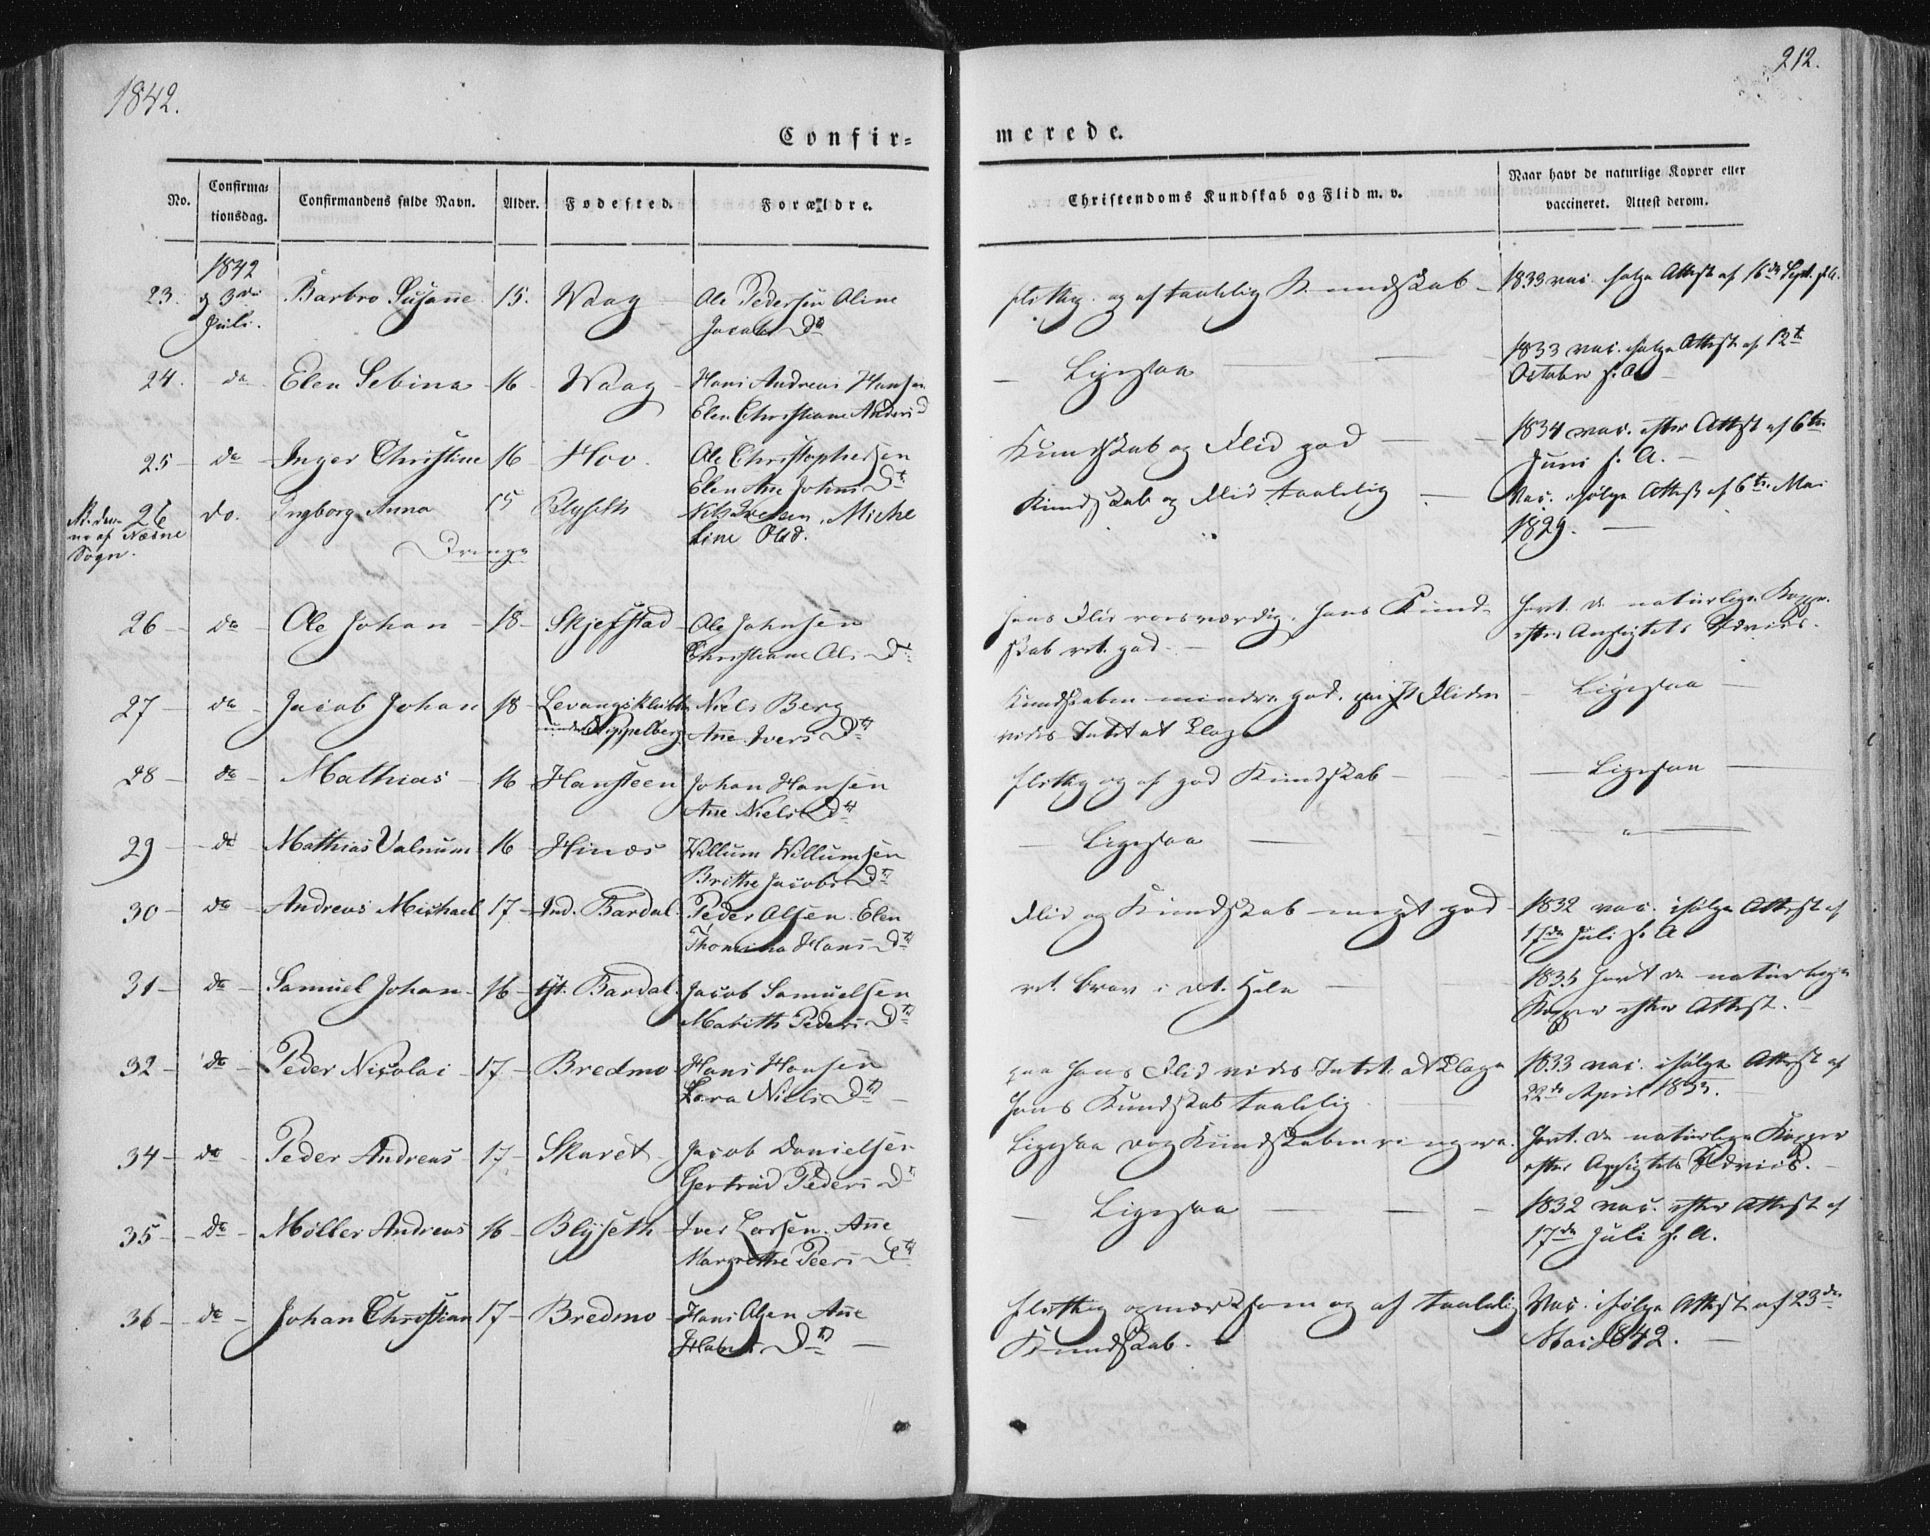 1842.
212.
Confir-
merede.
No.
Confirma-
tionsdag.
Confirmandens fulde Navn.
Alder.
Fødested.
Forældre.
Christendoms Kundskab og Flid m. v.
Naar havt de naturlige Kopper eller
vaccineret. Attest derom.
1842
23. 3die Barbro Susanne 15. Waag Ole Pedersen Aline
Juli. Jacobs Dtr
flittig og af taalelig Kundskab 1833 vac. ifølge Attest af 16de Sept. s. A.
24. do Elen Sebina 16 Waag Hans Andreas Hansen
Elen Christiane Anders D
Ligesaa 1833 vac. ifølge Attest af 12t
October s. A
25 do Inger Christine 16 Hov. Ole Christophersen
Elen Ane Johns Dt
Kundskab og Flid god 1834 vac. efter Attest af 6te
Juni s. A.
26 do. Ingborg Anna 15 Blyseth Nils Iversen, Miche
line Olsd.
af Næsne
Sogn.
Drenge
Kundskab og Flid taalelig Vac. ifølge Attest af 6te Mai
1829.
26 do Ole Johan 18 Skjefstad Ole Johnsen
Christiane Ols Dt
hans Flid roesværdig, hans Kund-
skab ret god. havt de naturlige Kopper
efter Ansigtets Udviis.
27 do Jacob Johan 18 Levangsklubben Niels Berg
under Kippelberg Ane Ivers Dtr
Kundskaben mindre god, paa Fliden
vides Intet at klage Ligesaa
28 do Mathias 16 Hansteen Johan Hansen
Ane Niels Dtr
flittig og af god Kundskab Ligesaa
29 do Mathias Valnum 16 Hinæs Willum Willumsen
Brithe Jacobs Dtr
Ligesaa "
30 do Andreas Michael 17 Ind. Bardal Peder Olsen. Elen
Thomina Hans Dtr
Flid og Kundskab meget god 1832 vac. ifølge Attest af
17de Juli s. A
31 do Samuel Johan 16 Yt. Bardal. Jacob Samuelsen
Marith Peders Dtr
ret brav i det Hele 1835 havt de naturlige
Kopper efter Attest.
32 do Peder Nicolai 17 Bredmo Hans Hansen
Lara Niels Dtr
paa hans Flid vides Intet at klage
hans Kundskab taalelig 1833 vac. ifølge Attest af
22de April 1833.
34 do Peder Andreas 17 Skaret Jacob Danielsen
Gertrud Peders D
Ligesaa dog Kundskaben ringere. havt de naturlige Kopper
efter Ansigtets Udviis.
35 do Møller Andreas 16 Blyseth Iver Larsen. Ane
Margrethe Peers Dtr
Ligesaa 1832 vac. efter Attest af
17de Juli s. A.
36 do Johan Christian 17 Bredmo Hans Olsen Ane
Dtr
flittig opmærksom og af taalelig
Kundskab. Vac. ifølge Attest af 23de
Mai 1842.